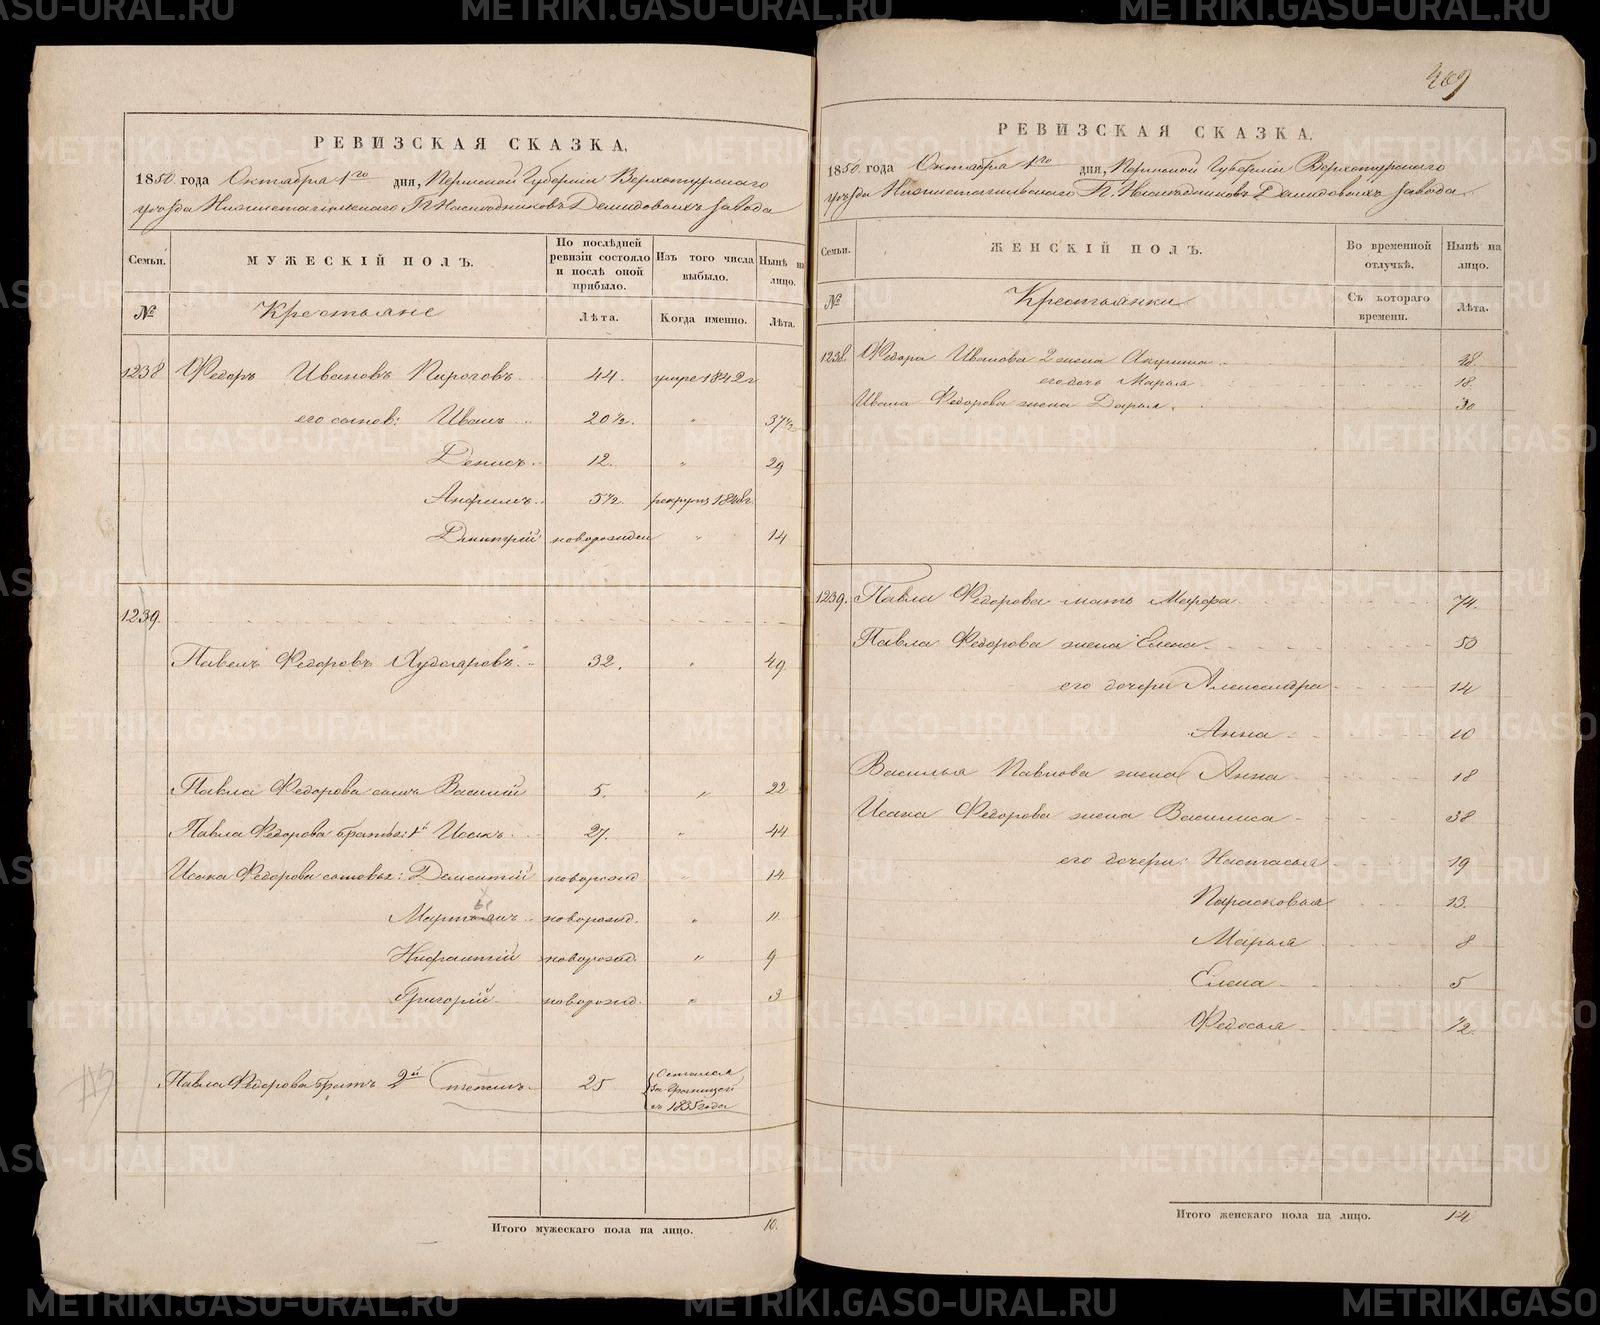 409
РЕВИЗСКАЯ СКАЗКА.
1850 года Октября 1го дня, Пермской Губернии Верхотурскаго
уѣзда Нижнетагильскаго Г.г. Наслѣдниковъ Демидовыхъ завода
Семьи.
МУЖЕСКІЙ ПОЛЪ.
По послѣдней ревизіи состояло и послѣ оной прибыло.
Изъ того числа выбыло.
Нынѣ на лицо.
№
Крестьяне
Лѣта.
Когда именно.
Лѣта.
1238 Ѳедоръ Ивановъ Пироговъ 44. умре 1842 г
его сынов: Иванъ 20½. " 37½
Денисъ 12. " 29
Анфимъ 5½. рекрутъ 1848г
Дмитрій новорожден " 14
1239.
Павелъ Ѳедоровъ Худояровъ 32. " 49
Павла Ѳедорова сынъ Василий 5. " 22
Павла Ѳедорова братья: 1й Исакъ 27. " 44
Исака Ѳедорова сыновья: Дементий новорожд " 14
Мартьянъ новорожд. " 11
Нифантій новорожд. " 9
Григорій новорожд. " 3
Павла Ѳедорова братъ 2й Степанъ 25
Остался
за Границей
съ 1835 года
Итого мужескаго пола на лицо. 10.
РЕВИЗСКАЯ СКАЗКА.
1850 года Октября 1го дня, Пермской Губерніи Верхотурскаго
уѣзда Нижнетагильскаго Г.г. Наслѣдниковъ Демидовыхъ завода
Семьи.
ЖЕНСКІЙ ПОЛЪ.
Во временной отлучкѣ.
Нынѣ на лицо.
№
Крестьянки
Съ котораго времени.
Лѣта.
1238. Ѳедора Иванова 2 жена Акулина
его дочь Марья 18.
Ивана Ѳедорова жена Дарья. 30
1239. Павла Ѳедорова мать Марфа 74.
Павла Ѳедорова жена Елена 50
его дочери Александра 14
Анна 10
Василья Павлова жена Анна 18
Исака Ѳедорова жена Василиса 38
его дочери: Настасья 19
Парасковья 13.
Марья 8
Елена 5
Ѳедосья ½.
Итого женскаго пола на лицо. 14
METRIKI.GASO-URAL.RU